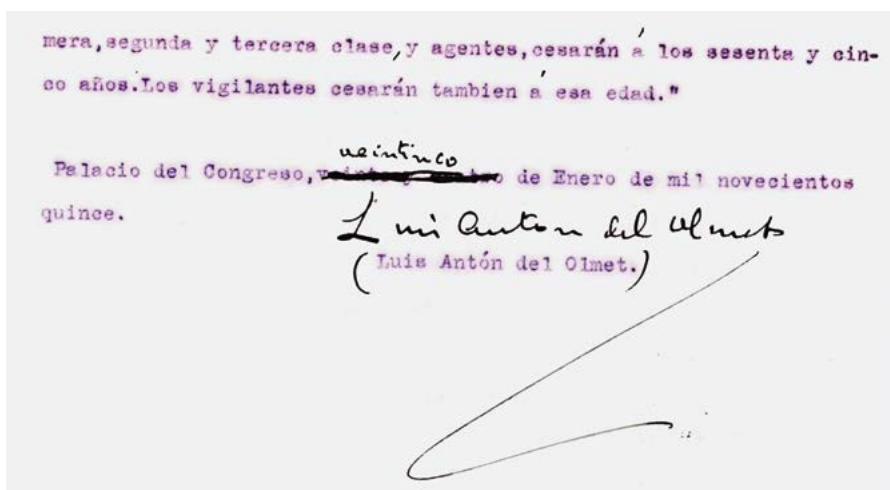 mera,segunda y tercera clase,y agentes,cesarán á los sesenta y cin-
co años.Los vigilantes cesarán tambien á esa edad."
veinticinco
Palacio del Congreso, de Enero de mil novecientos
quince.
Luis Anton del Olmet
(Luis Antón del Olmet.)